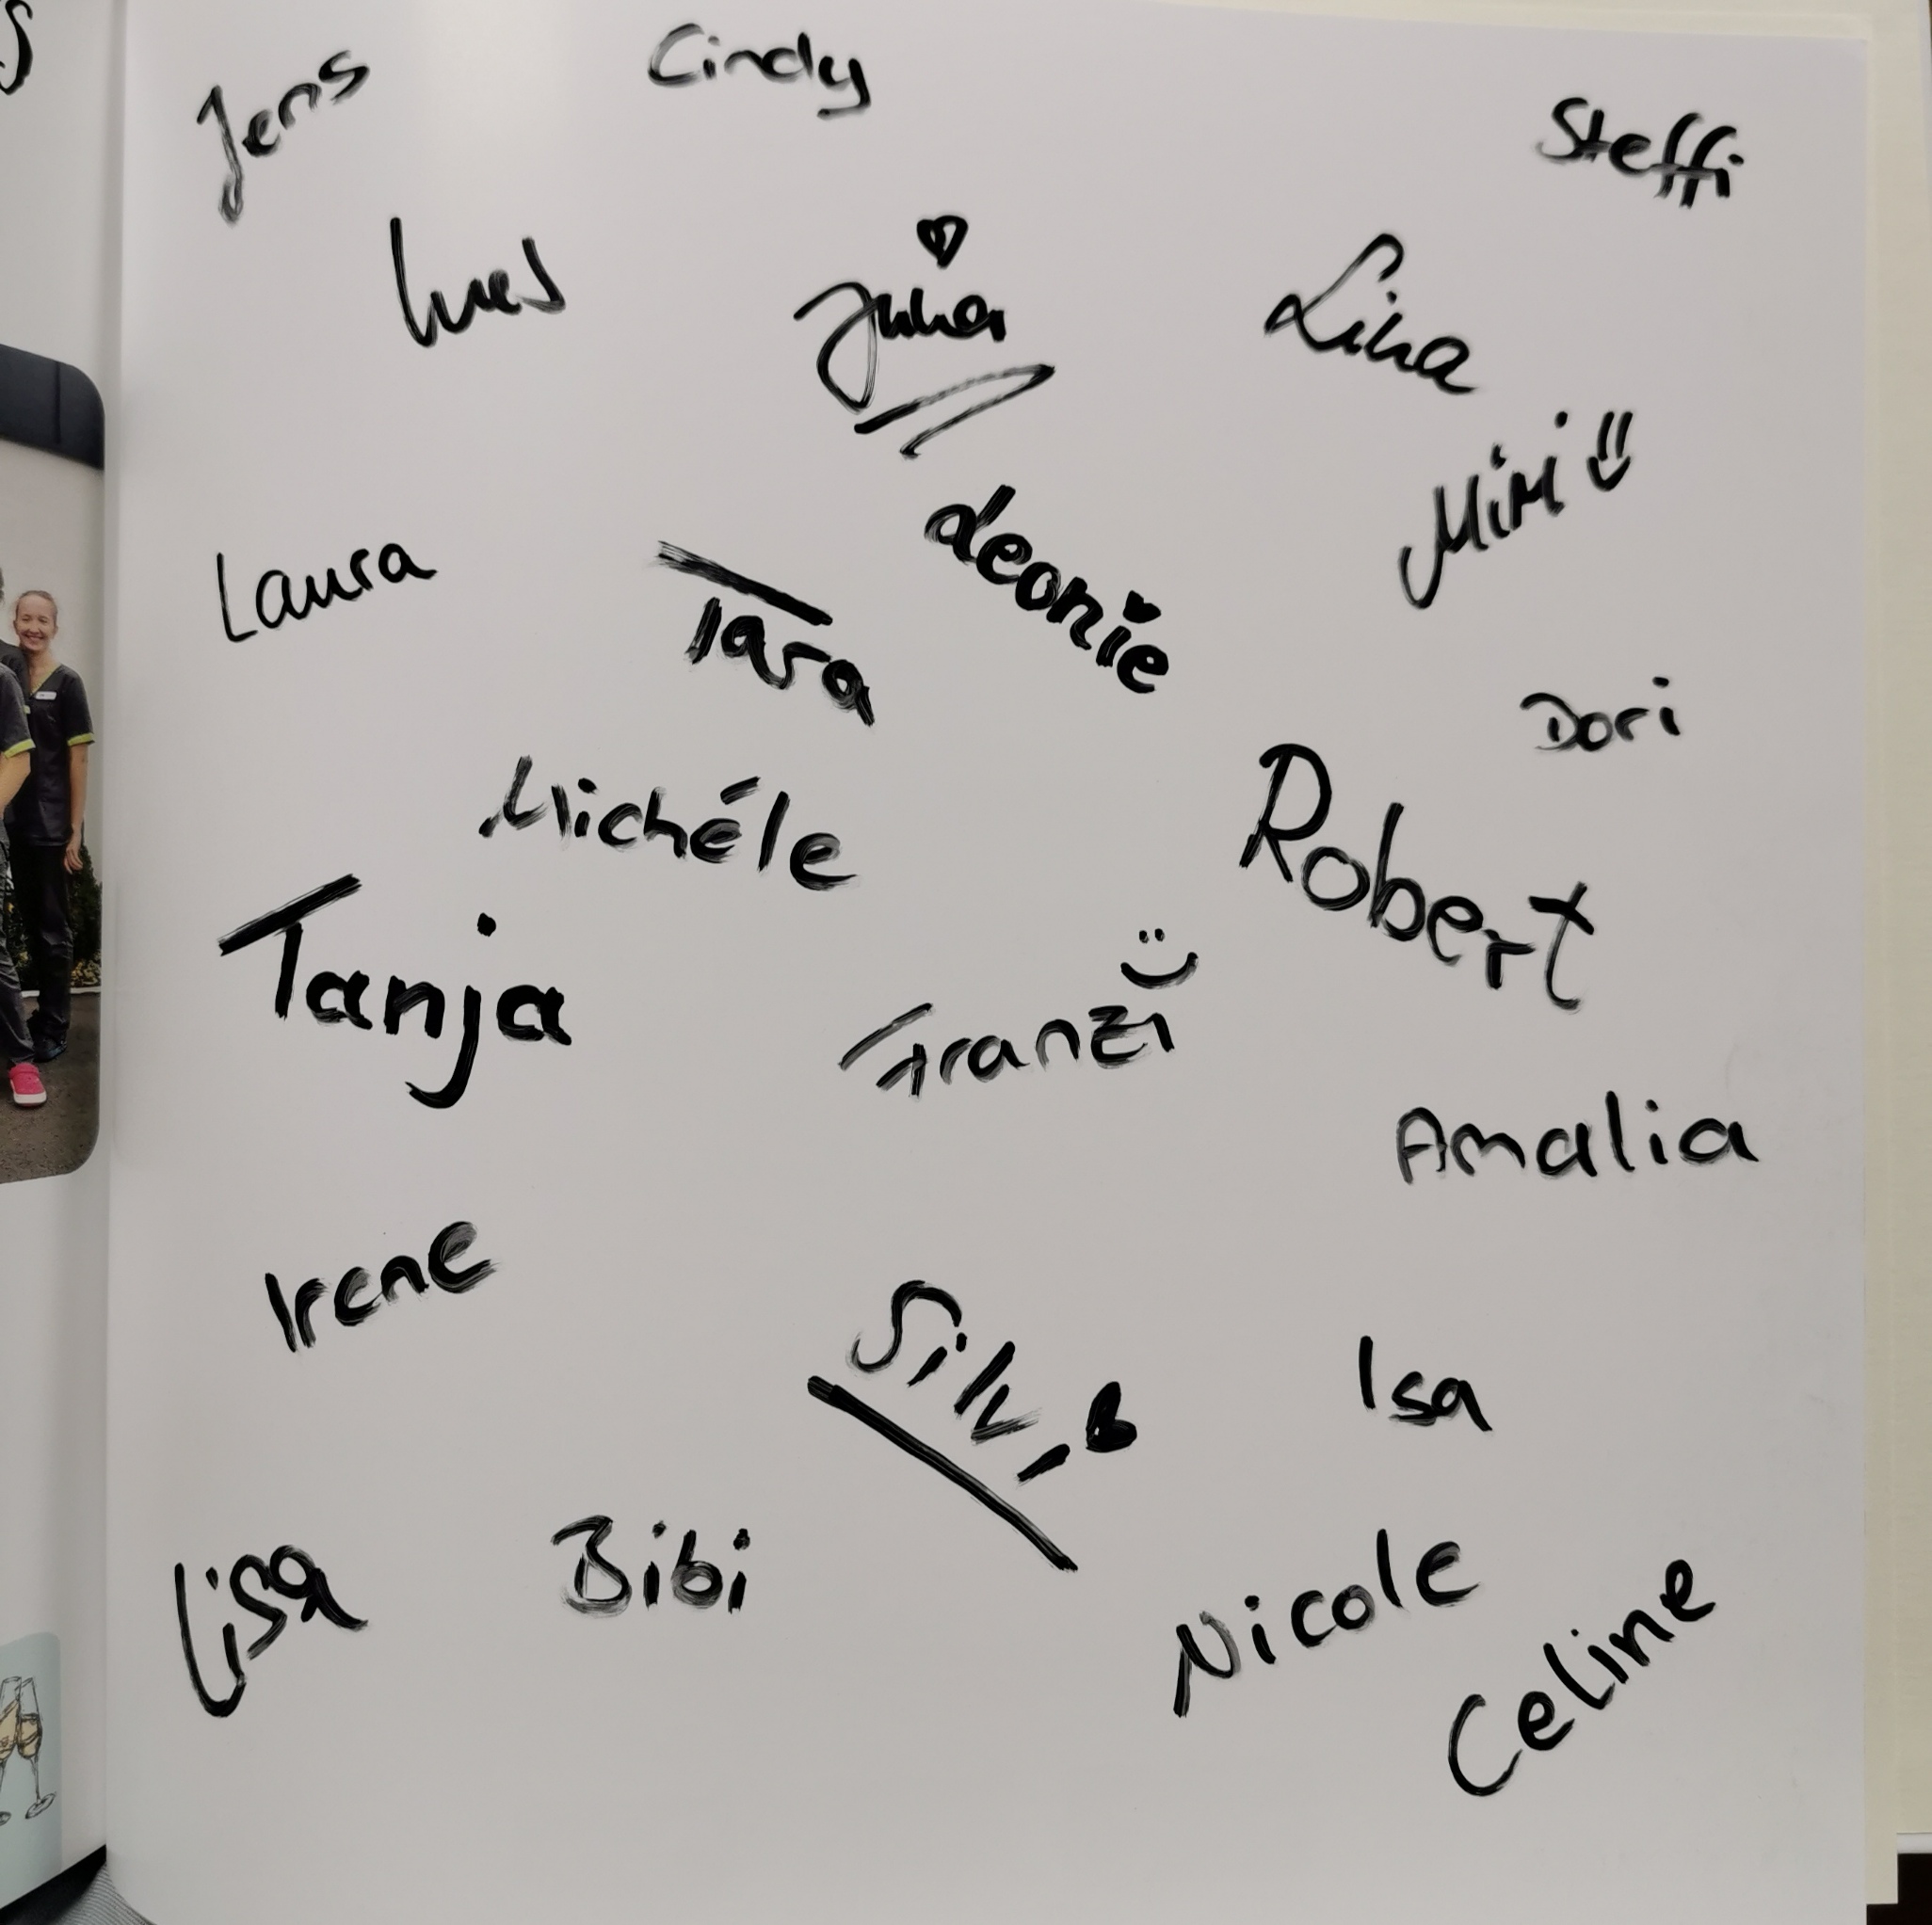 Jens
Cindy
Steffi
Ines
Julia
Lina
Mimi
Leonie
Laura
Tara
Dori
Michéle
Robert
Tanja
Franzi
Amalia
Irene
Silvi
Isa
Lisa
Bibi
Nicole
Celine